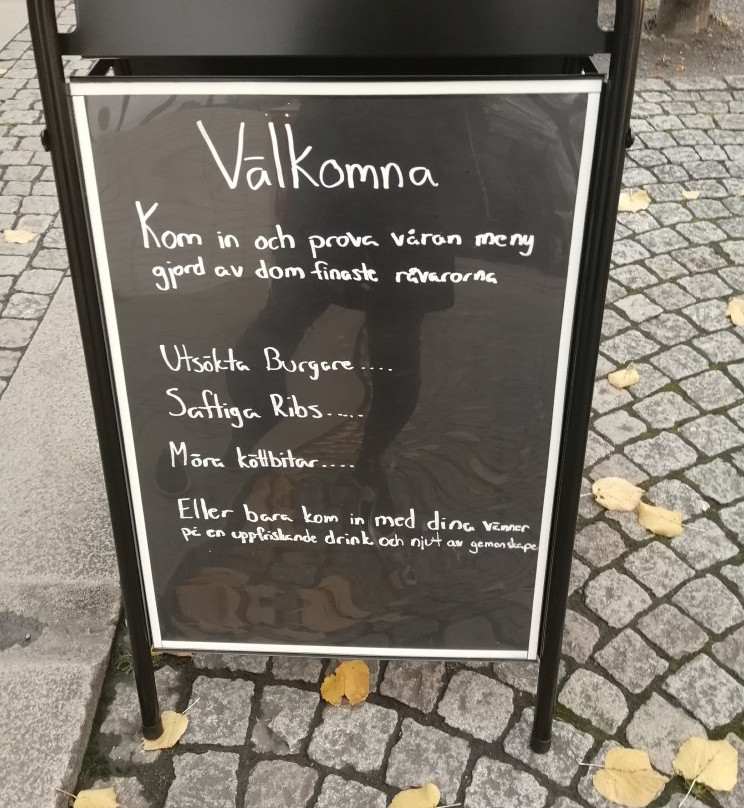 Välkomna
Kom in och prova våran meny
gjord av dom finaste råvarorna
Utsökta Burgare....
Saftiga Ribs.....
Möra köttbitar....
Eller bara kom in med dina vänner
på en uppfriskande drink och njut av gemenskape